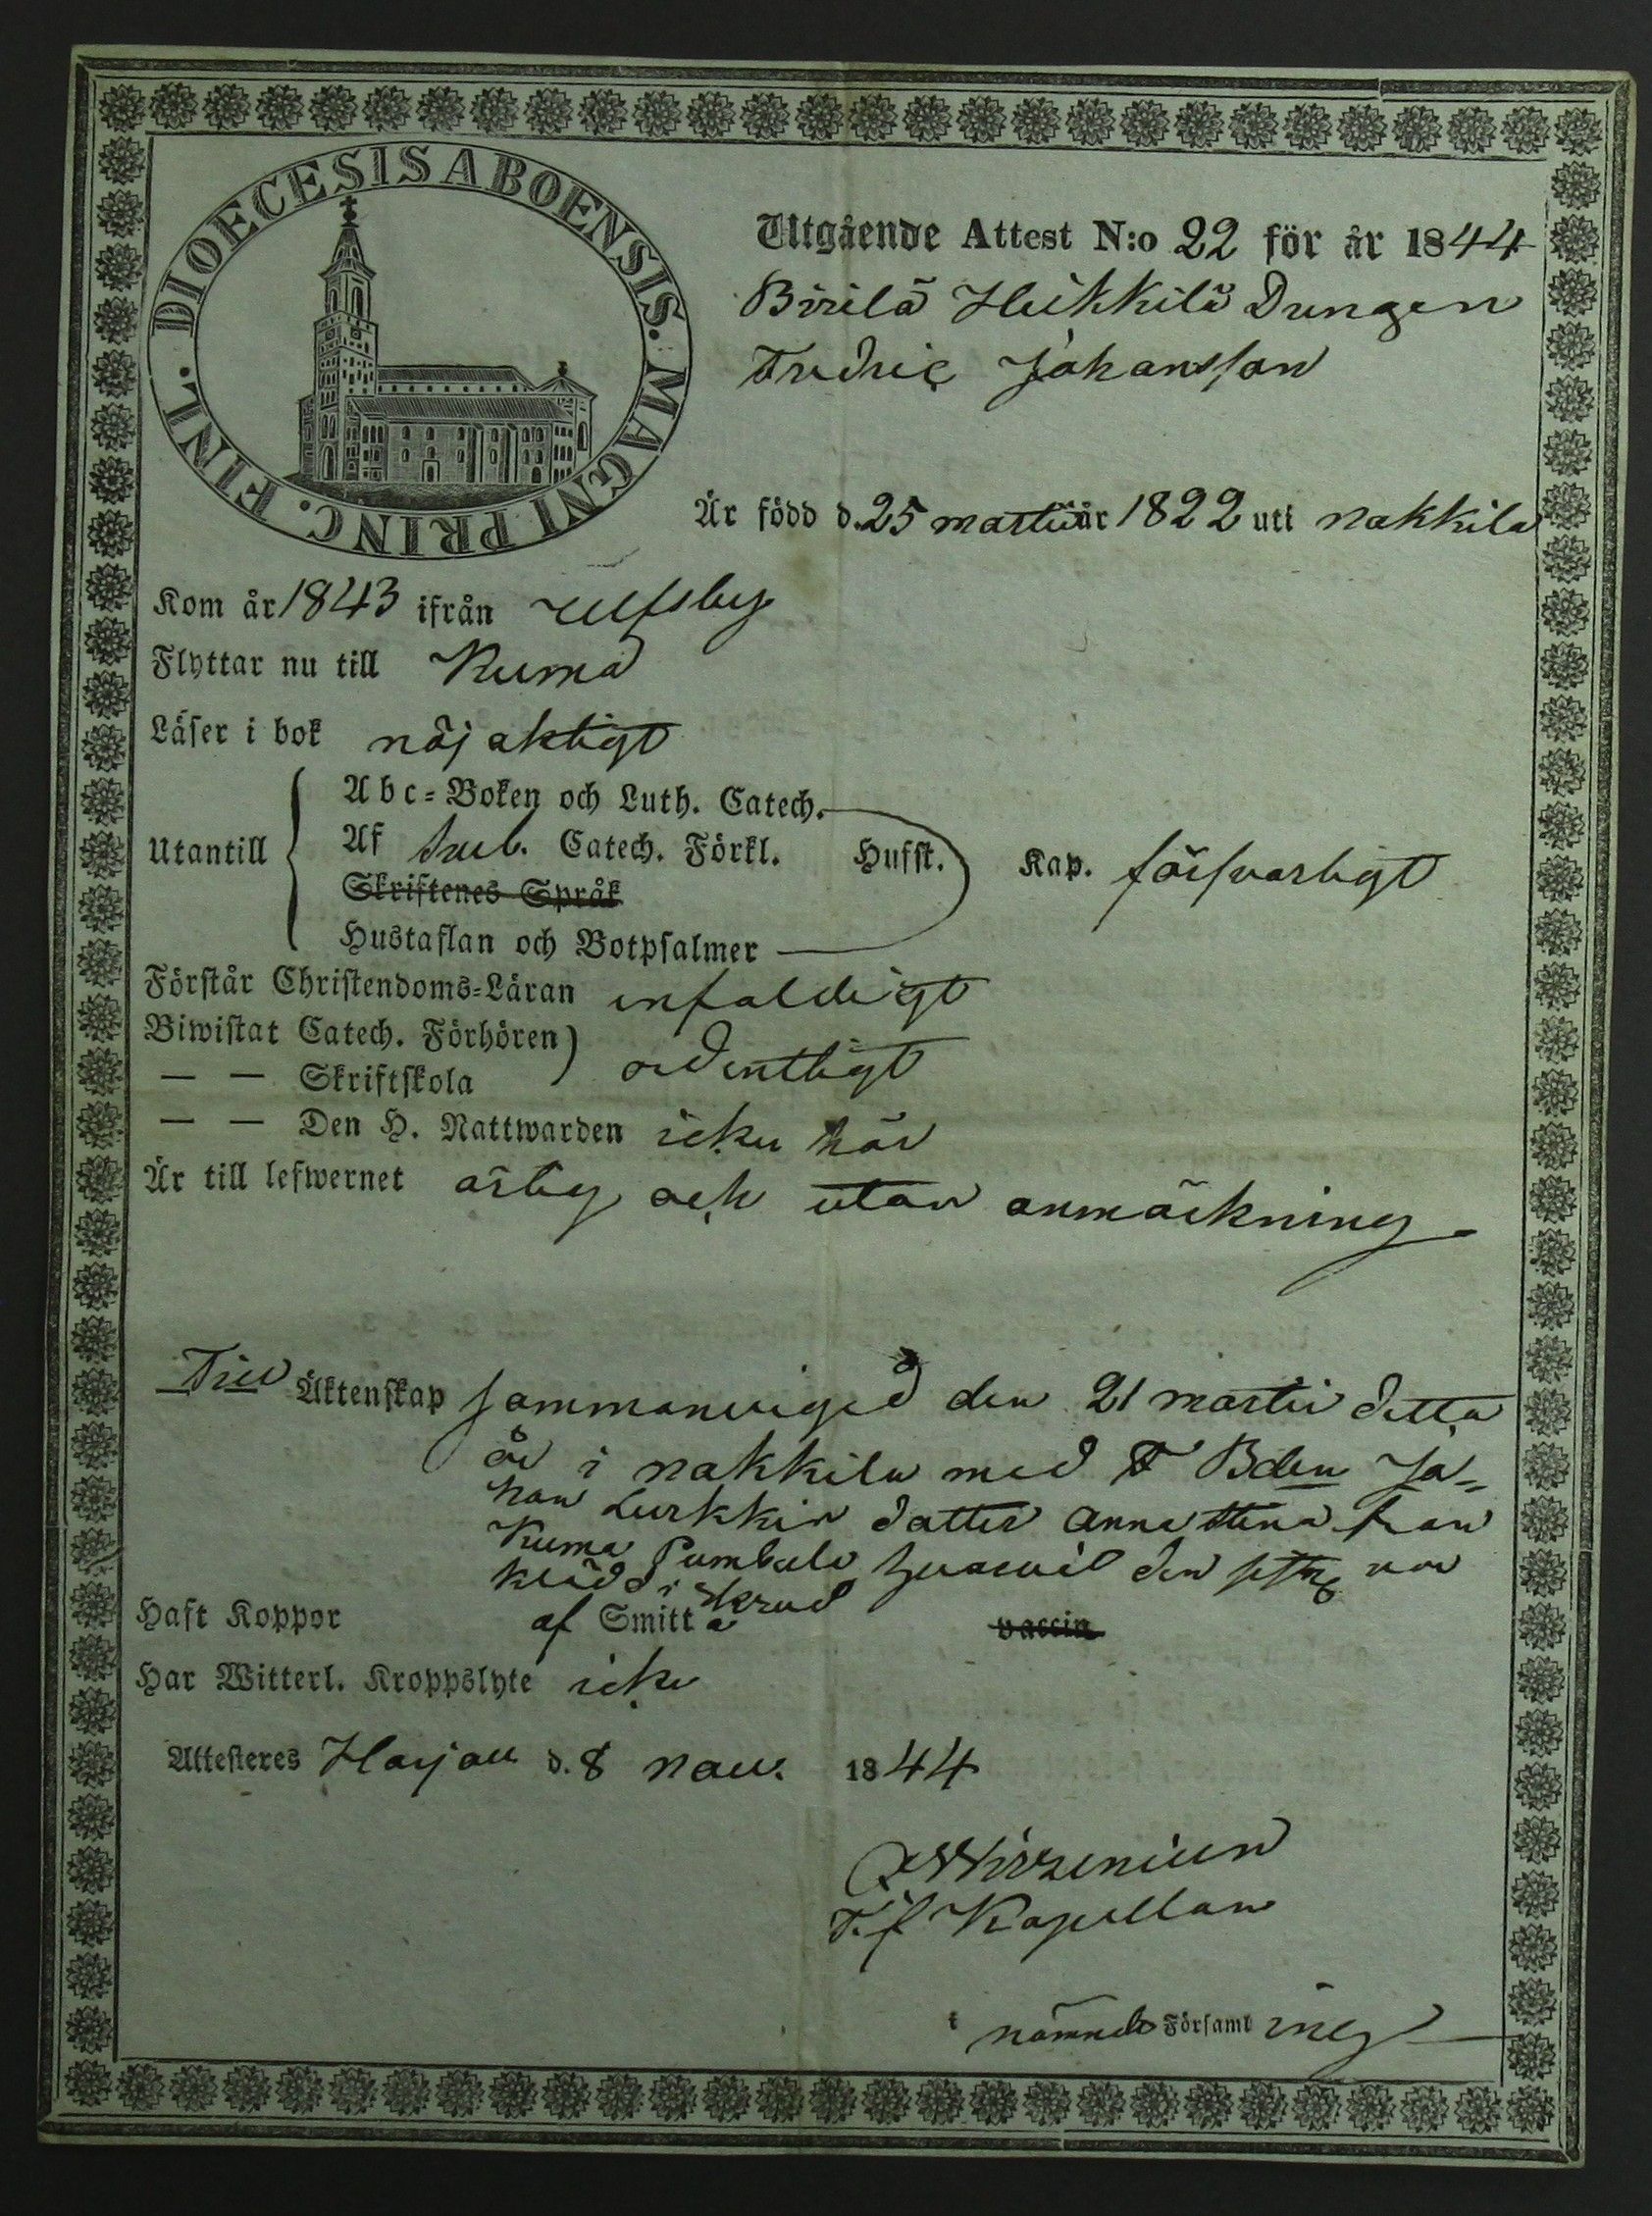 DIOECESIS ABOENSIS. MAGNI PRINC. FINL.
Utgående Attest N:o 22 för år 1844
Birilä Heikkilä Drengen
Fredric Johansson
Är född d. 25 martii år 1822 uti Nakkila
Kom år 1843 ifrån Ulfsby
Flyttar nu till Kumo
Läser i bok nöjaktigt
Utantill
Abc-Boken och Luth. Catech.
Af Sveb. Catech. Förkl. Hufst. Kap. försvarligt
Skriftenes Språk
Hustaflan och Botpsalmer
Förstår Christendoms-Läran enfaldigt
Biwistat Catech. Förhören
— — Skriftskola ordentligt
— — Den H. Nattwarden icke här
Är till lefwernet ärlig och utan anmärkning
Till Äktenskap sammanvigd den 21 martii detta
år i Nakkila med Bden Jo-
han dotter Anna Stina från
Kumo den var
klädd i skrud
Haft Koppor af Smitta vaccin
Har Witterl. Kroppslyte icke
Attesteres Harjau d. 8 Nov. 1844
T.f Kapellan
i nämnde Församling